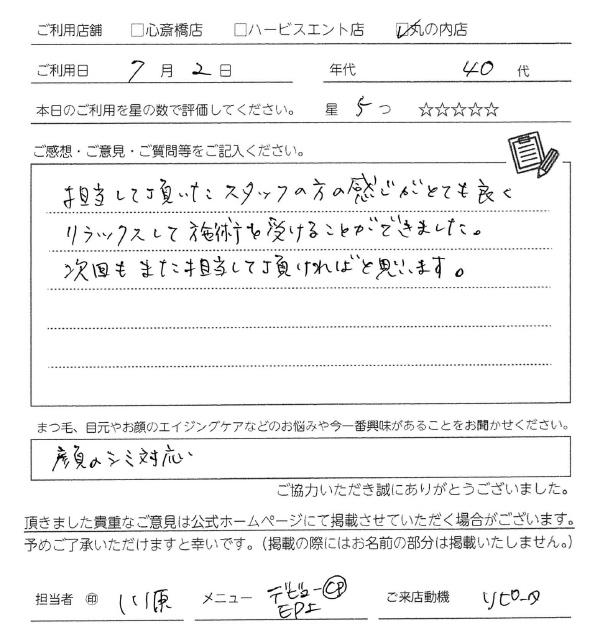 ご利用店舗 □心斎橋店 □ハービスエント店 ☑丸の内店
ご利用日 7 月 2 日 年代 40 代
本日のご利用を星の数で評価してください。 星 5 つ ☆☆☆☆☆
ご感想・ご意見・ご質問等をご記入ください。
担当して頂いたスタッフの方の感じがとても良く
リラックスして施術を受けることができました。
次回もまた担当して頂ければと思います。
まつ毛、目元やお顔のエイジングケアなどのお悩みや今一番興味があることをお聞かせください。
顔のシミ対応
ご協力いただき誠にありがとうございました。
頂きました貴重なご意見は公式ホームページにて掲載させていただく場合がございます。
予めご了承いただけますと幸いです。（掲載の際にはお名前の部分は掲載いたしません。）
担当者 ㊞ 川原 メニュー デビューCP ご来店動機 リピータ